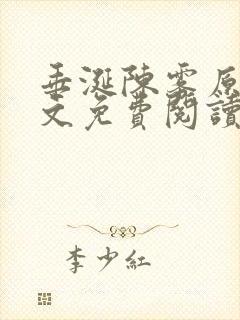 垂涎陳雾原
文免費閱讀
李少紅